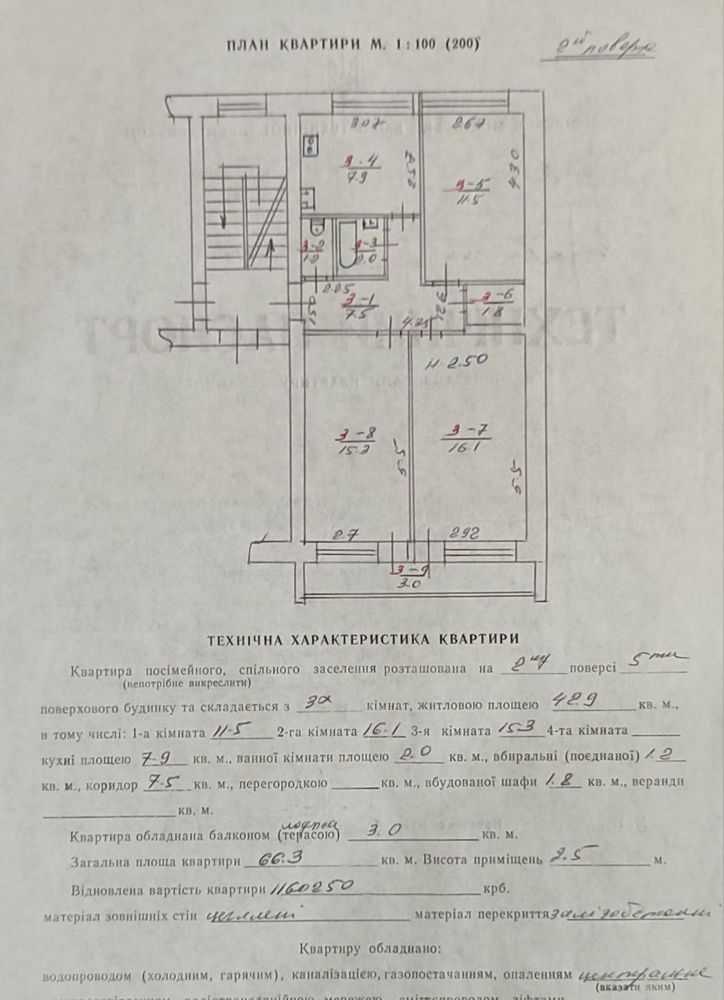 ПЛАН КВАРТИРИ М. 1:100 (200)
2ий поверх
3.07
2.67
3-4
7.9
2.58
3-5
11.5
4.30
3-2
1.2
3-3
2.0
2.25
3-1
7.5
1.50
3-6
1.8
4.25
Н-2.50
3-8
15.2
5.5
3-7
16.1
5.5
2.7
2.92
3-9
3.0
ТЕХНІЧНА ХАРАКТЕРИСТИКА КВАРТИРИ
Квартира посімейного, спільного заселення розташована на 2му поверсі 5ти
(непотрібне викреслити)
поверхового будинку та складається з 3х кімнат, житловою площею 42.9 кв. м.,
в тому числі: 1-а кімната 11-5 2-га кімната 16.1 3-я кімната 15-3 4-та кімната
кухні площею 7-9 кв. м., ванної кімнати площею 2.0 кв. м., вбиральні (поєднаної) 1.2
кв. м., коридор 7-5 кв. м., перегородкою кв. м., вбудованої шафи 1.8 кв. м., веранди
кв. м.
лоджія
Квартира обладнана балконом (терасою) 3.0 кв. м.
Загальна площа квартири 66.3 кв. м. Висота приміщень 2.5 м.
Відновлена вартість квартири 1160250 крб.
матеріал зовнішніх стін цегляні матеріал перекриття залізобетонні
Квартиру обладнано:
водопроводом (холодним, гарячим), каналізацією, газопостачанням, опаленням центральне
(вказати яким)